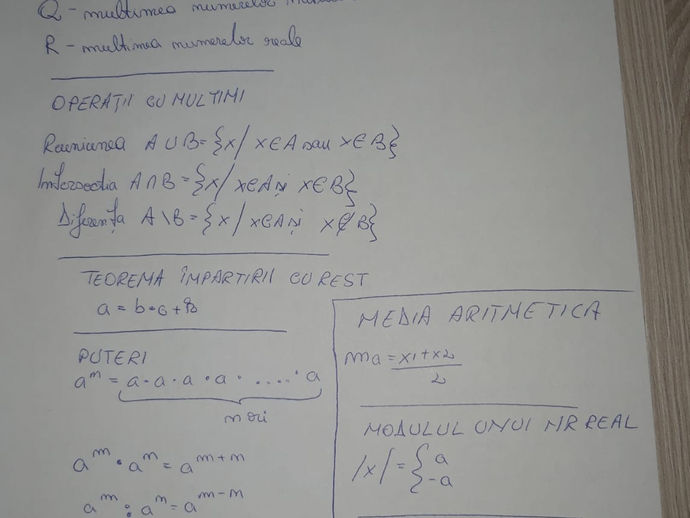 Q - multimea numerelor
R - multimea numerelor reale
OPERAȚII CU MULTIMI
Reuniunea A ∪ B = {x / x ∈ A sau x ∈ B}
Intersectia A ∩ B = {x / x ∈ A și x ∈ B}
Diferența A \ B = {x / x ∈ A și x ∉ B}
TEOREMA ÎMPARTIRII CU REST
a = b • c +
PUTERI
aⁿ = a • a • a • a • ..... • a
n ori
aᵐ • aⁿ = aᵐ⁺ⁿ
aᵐ : aⁿ = aᵐ⁻ⁿ
MEDIA ARITMETICA
ma = x1 + x2
2
MODULUL UNUI NR REAL
/x/ = { a
-a